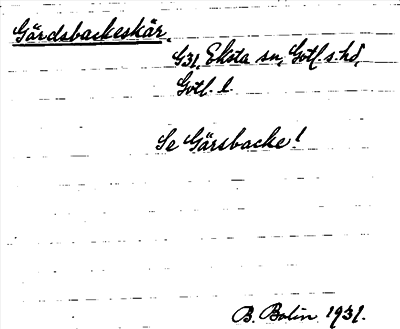 Gårdsbackeskär.
G31, Eksta sn, Gotl. s. hd,
Gotl. l.
Se Gårsbacke!
B. Bolin 1931.